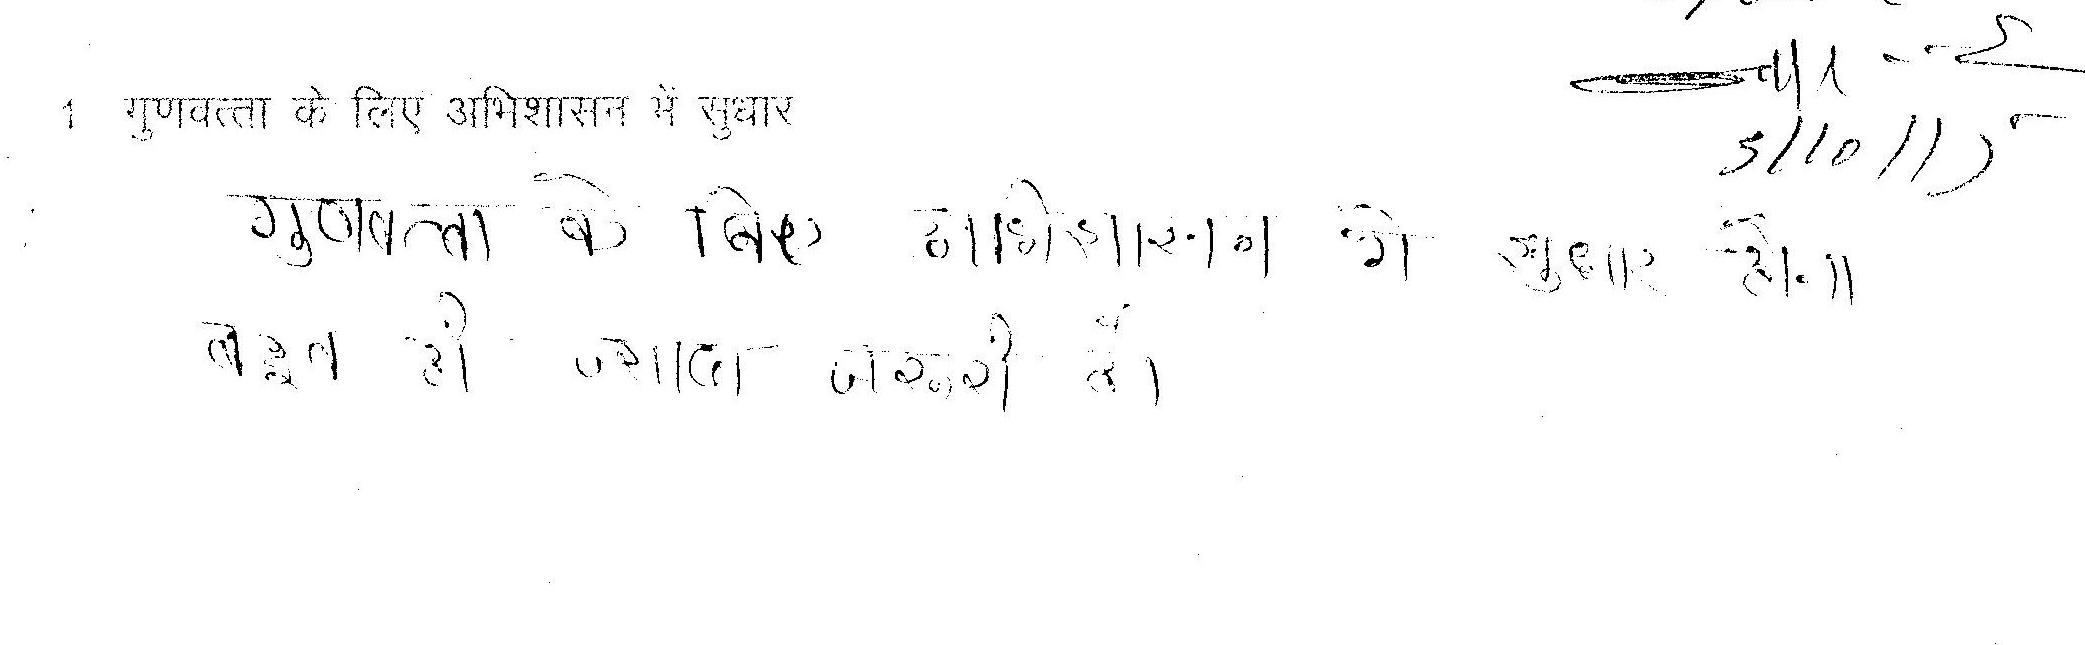 1 गुणवत्ता के लिए अभिशासन में सुधार
5/10/15
गुणवत्ता के लिए अभिशासन मे सुधार होना
बहुत ही ज्यादा जरूरी है।